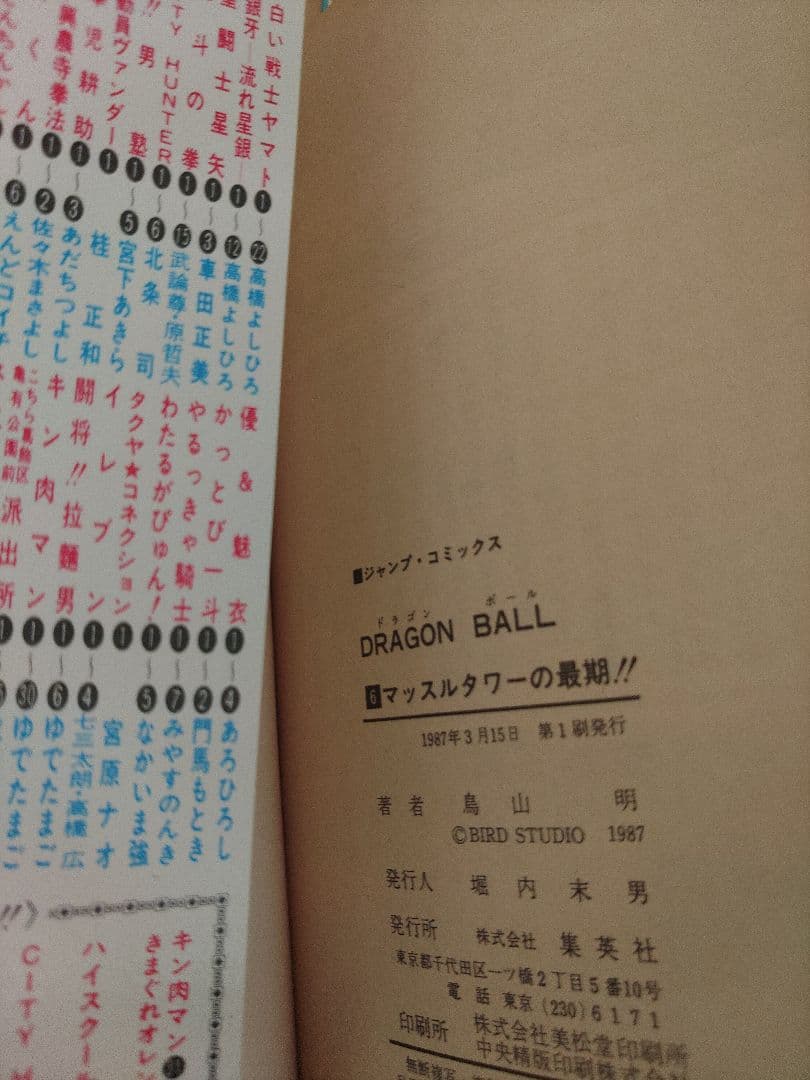 白い戦士ヤマト ❶〜㉒ 高橋よしひろ
銀牙―流れ星銀― ❶〜⓬ 高橋よしひろ
闘士星矢 ❶〜❸ 車田正美
斗の拳 ❶〜⓯ 武論尊・原哲夫
TY HUNTER ❶〜❻ 北条司
!!男塾 ❶〜❺ 宮下あきら
動員ヴァンダー ❶ 桂正和
児耕助 ❶〜❸ あだちつよし
興農寺拳法 ❶〜❷ 佐々木まさよし
くん ❶〜❻ えんどコイチ
優&魅衣 ❶〜❹ あろひろし
かっとび一斗 ❶〜❷ 門馬もとき
やるっきゃ騎士 ❶〜❼ みやすのんき
わたるがぴゅん! ❶〜❺ なかいま強
タクヤ★コネクション ❶ 宮原ナオ
イレブン ❶〜❹ 七三太朗・高橋広
闘将!!拉麵男 ❶〜❻ ゆでたまご
キン肉マン ❶〜㉚ ゆでたまご
こちら葛飾区亀有公園前派出所 ❶
キン肉マン
きまぐれオレン
ハイスクー
CITY
■ジャンプ・コミックス
ドラゴン ボール
DRAGON BALL
6 マッスルタワーの最期!!
1987年3月15日 第1刷発行
著者 鳥山 明
©BIRD STUDIO 1987
発行人 堀内末男
発行所 株式会社 集英社
東京都千代田区一ツ橋2丁目5番10号
電話 東京(230)6171
印刷所 株式会社美松堂印刷所
中央精版印刷株式会社
無断複写